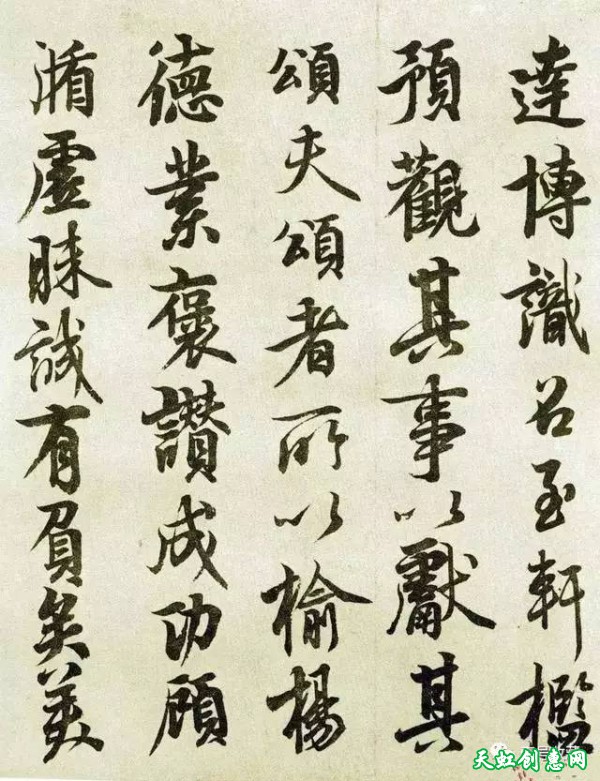 達博識召至軒檻
預觀其事以獻其
頌夫頌者所以榆楊
德業褒讚成功顧
循虛昧誠有負矣美
天虹创惠网